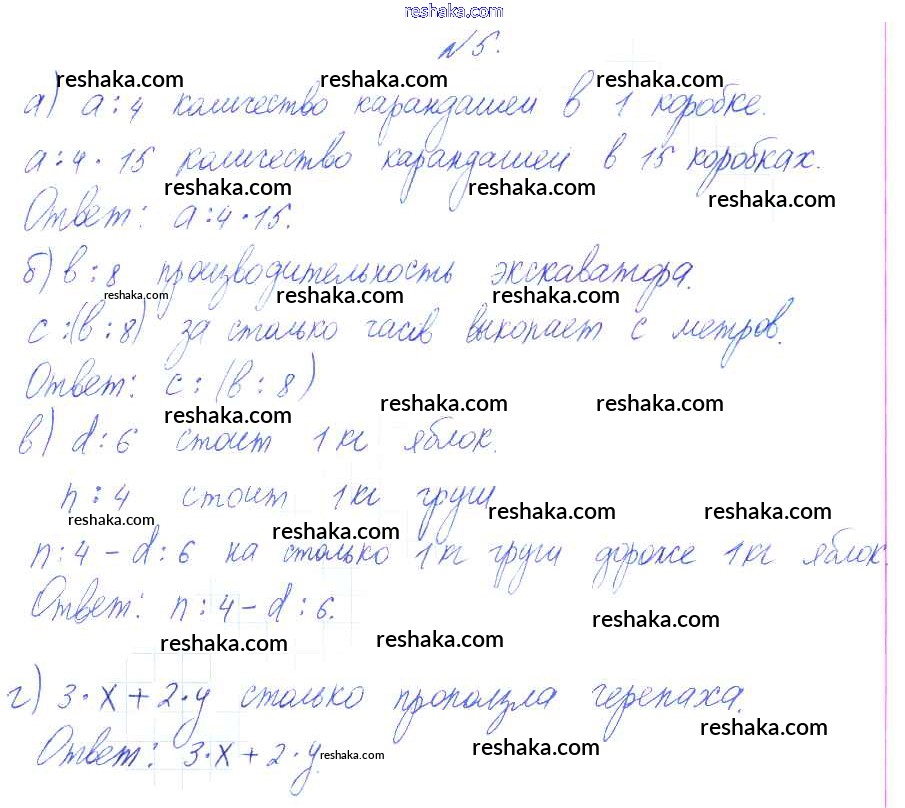 reshaka.com
№5.
reshaka.com reshaka.com reshaka.com
а) а:4 количество карандашей в 1 коробке.
а:4·15 количество карандашей в 15 коробках.
reshaka.com reshaka.com reshaka.com
Ответ: а:4·15.
б) в:8 производительность экскаватора.
reshaka.com reshaka.com reshaka.com
с:(в:8) за столько часов выкопает с метров.
Ответ: с:(в:8)
reshaka.com reshaka.com reshaka.com
в) d:6 стоит 1кг яблок.
n:4 стоит 1кг груш
reshaka.com reshaka.com reshaka.com
reshaka.com
n:4-d:6 на столько 1кг груш дороже 1кг яблок.
Ответ: n:4-d:6.
reshaka.com reshaka.com reshaka.com
г) 3·х+2·у столько проползла черепаха.
reshaka.com
Ответ: 3·х+2·у.
reshaka.com reshaka.com